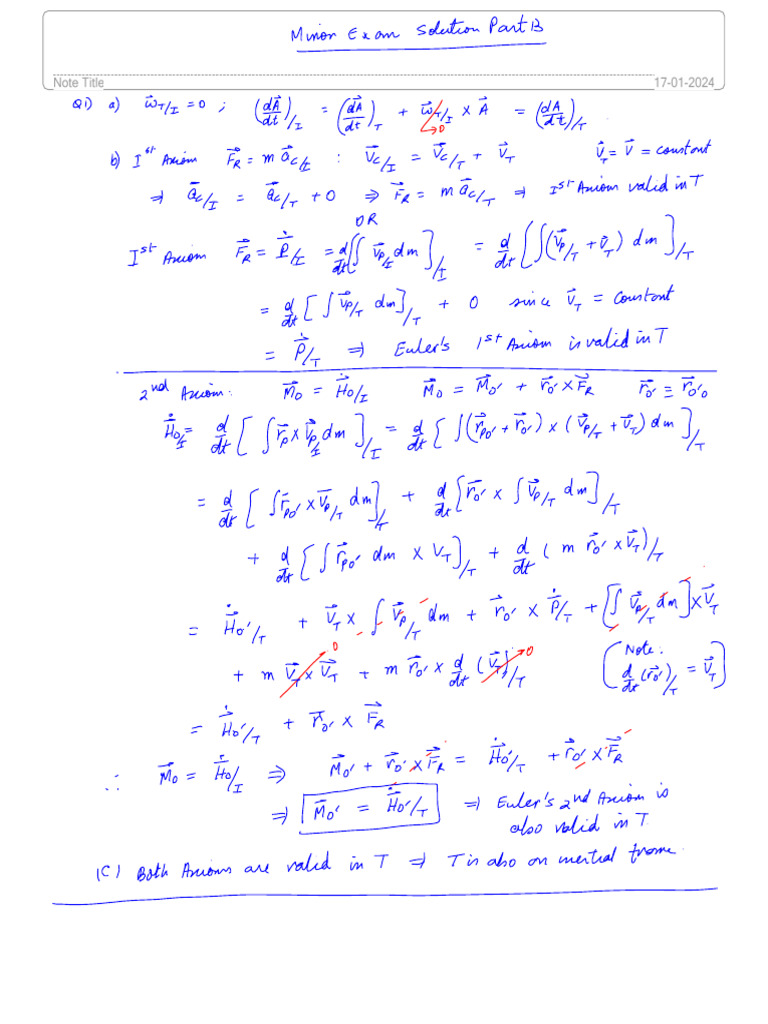 Minor Exam Solution Part B
Note Title 17-01-2024
Q1) a) ω⃗_T/I = 0 ; (dA⃗/dt)_/I = (dA⃗/dt)_T + ω⃗_T/I × A⃗ = (dA⃗/dt)_/T
→0
b) Iˢᵗ Axiom F⃗_R = m a⃗_C/I : V⃗_C/I = V⃗_C/T + V⃗_T v⃗_T = V⃗ = constant
⇒ a⃗_C/I = a⃗_C/T + 0 ⇒ F⃗_R = m a⃗_C/T ⇒ Iˢᵗ Axiom valid in T
OR
Iˢᵗ Axiom F⃗_R = Ṗ⃗_/I = d/dt [∫ v⃗_P/I dm]_/I = d/dt [∫ (v⃗_P/T + v⃗_T) dm]_/T
= d/dt [∫ v⃗_P/T dm]_/T + 0 since v⃗_T = constant
= Ṗ⃗_/T ⇒ Euler's 1ˢᵗ Axiom is valid in T
2ⁿᵈ Axiom: M⃗_O = Ḣ⃗_O/I M⃗_O = M⃗_O' + r⃗_O' × F⃗_R r⃗_O' ≡ r⃗_O'O
Ḣ⃗_O/I = d/dt [∫ r⃗_P × v⃗_P/I dm]_/I = d/dt [∫ (r⃗_PO' + r⃗_O') × (v⃗_P/T + v⃗_T) dm]_/T
= d/dt [∫ r⃗_PO' × v⃗_P/T dm]_/T + d/dt [r⃗_O' × ∫ v⃗_P/T dm]_/T
+ d/dt [∫ r⃗_PO' dm × V_T]_/T + d/dt (m r⃗_O' × v⃗_T)_/T
= Ḣ⃗_O'/T + v⃗_T × ∫ v⃗_P/T dm + r⃗_O' × Ṗ⃗_/T + [∫ v⃗_P/T dm] × v⃗_T
+ m v⃗_T × v⃗_T 0 + m r⃗_O' × d/dt (v⃗_T)_/T 0 [Note: d/dt (r⃗_O')_/T = v⃗_T]
= Ḣ⃗_O'/T + r⃗_O' × F⃗_R
∴ M⃗_O = Ḣ⃗_O/I ⇒ M⃗_O' + r⃗_O' × F⃗_R = Ḣ⃗_O'/T + r⃗_O' × F⃗_R
⇒ M⃗_O' = Ḣ⃗_O'/T ⇒ Euler's 2nd Axiom is
also valid in T
(C) Both Axioms are valid in T ⇒ T is also an inertial frame.